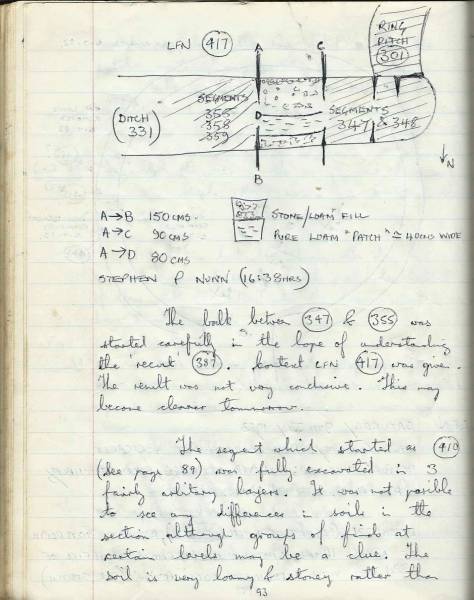 LFN 417
A
C
RING
DITCH
301
SEGMENTS
355
358
359
(DITCH
331)
D
SEGMENTS
347 & 348
B
N
A→B 150 CMS.
A→C 90 CMS
A→D 80 CMS
STONE/LOAM FILL
PURE LOAM "PATCH" ≃ 40cms WIDE
STEPHEN P NUNN (16:38HRS)
The balk between 347 & 355 was
started carefully in the hope of understanding
the 'recut' 387. Context LFN 417 was given.
The result was not very conclusive. This may
become clearer tomorrow.
The segment which started as 410
(see page 89) was fully excavated in 3
fairly arbitary layers. It was not posible
to see any differences in soils in the
section although groups of finds at
certain levels may be a clue. The
soil is very loamy & stoney rather than
93